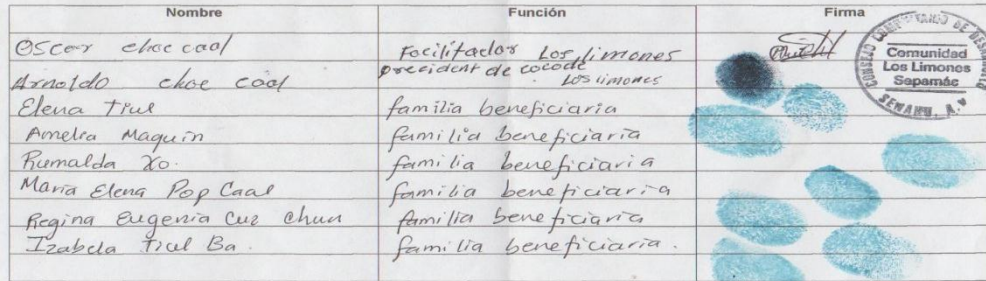 Nombre Función Firma
Oscar choc caal Facilitador Los limones
Arnoldo choc caal precident de cocode Los limones
Elena Tiul familia beneficiaria
Amelia Maquin familia beneficiaria
Rumalda Xo. familia beneficiaria
Maria Elena Pop Caal familia beneficiaria
Regina Eugenia Cuz chun familia beneficiaria
Izabela Tiul Ba. familia beneficiaria.
CONSEJO COMUNITARIO DE DESARROLLO
Comunidad
Los Limones
Sepamás
SENAHU, A.V